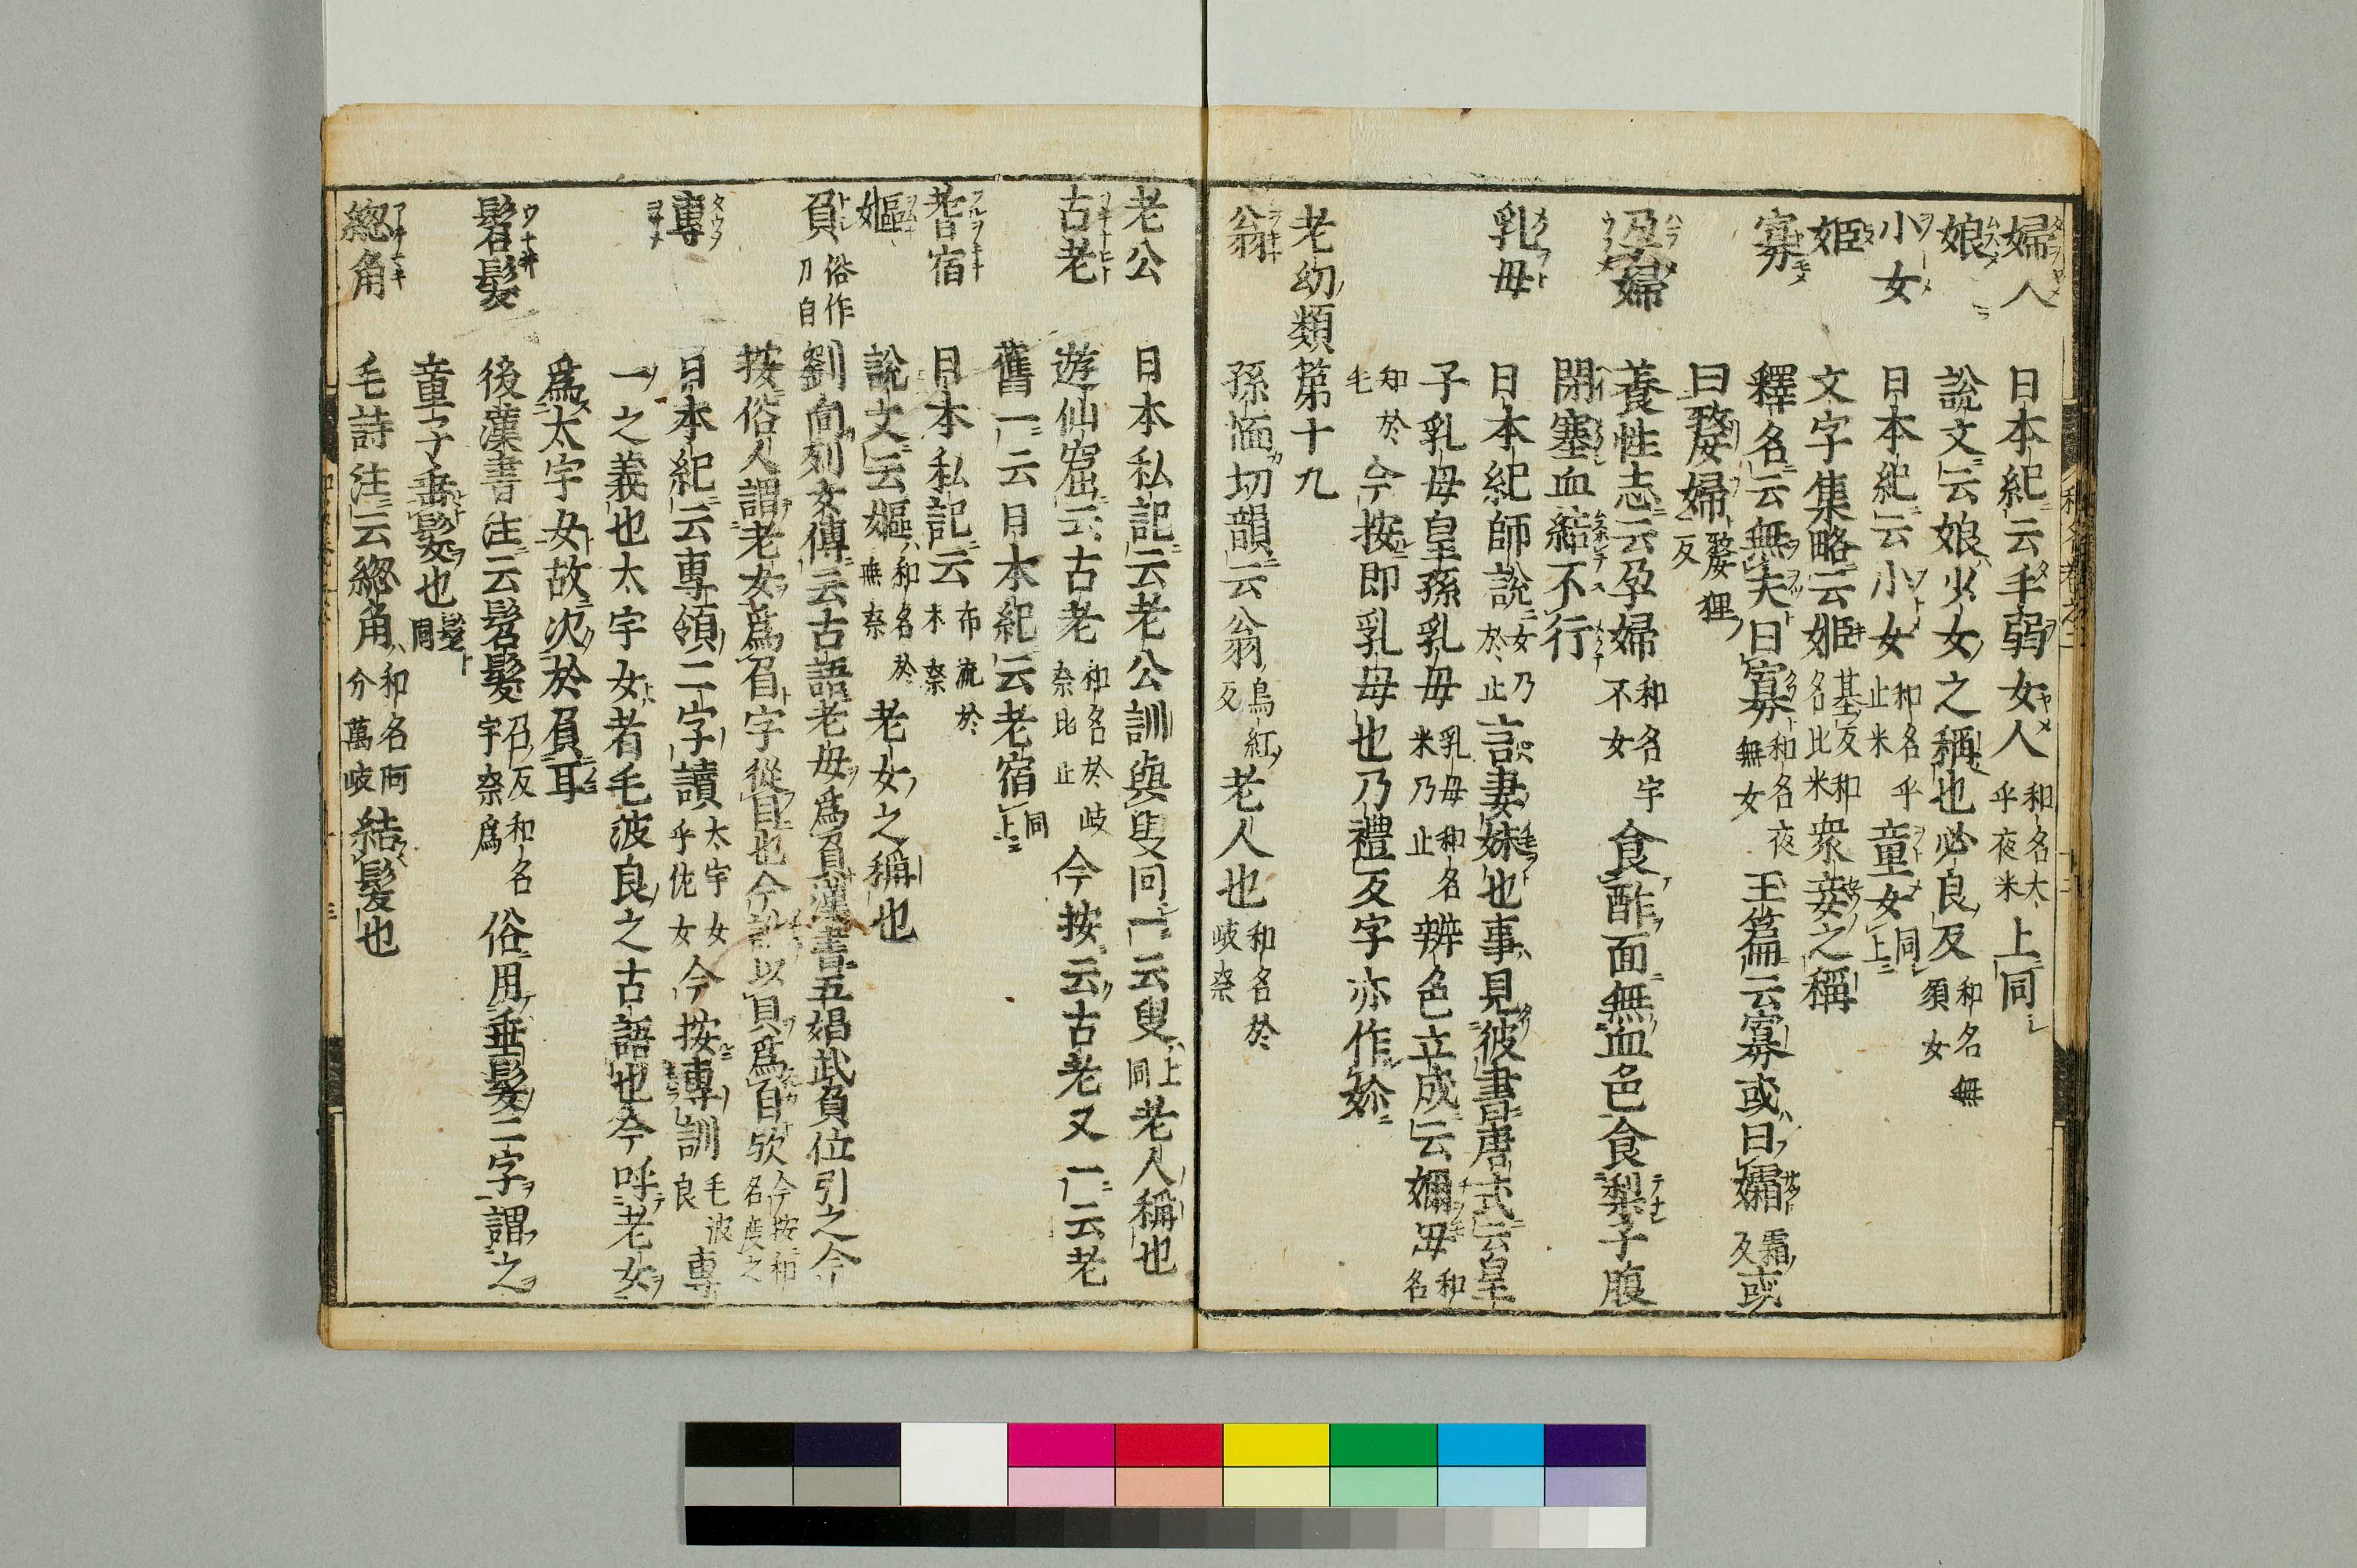 婦人 日本紀云手弱女人 和名太乎夜米 上同
娘 說文云娘少女之稱也必良反 和名無須女
小女 日本紀云小女 和名乎止米 童女 同上
姫 文字集略云姫 基反和名比米 衆妾之稱
寡 釋名云無夫曰寡 和名夜無女 玉篇云寡或曰孀 霜反 或
曰嫠婦 嫠狸反
孕婦 養性志云孕婦 和名宇不女 食酢面無血色食梨子腹
閉塞血結不行
乳母 日本紀師說 女乃於止 言妻妹也事見彼書唐式云皇
子乳母皇孫乳母 乳母和名米乃止 辨色立成云嬭母 和名
知於毛 今按即乳母也乃禮反字亦作妳
老幼類第十九
翁 孫愐切韻云翁 烏紅反 老人也 和名於岐奈
老公 日本私記云老公訓與叟同一云叟 上同 老人稱也
古老 遊仙窟云古老 和名於岐奈比止 今按云古老又一云老
舊一云日本紀云老宿 同上
耆宿 日本私記云 布流於木奈
嫗 說文云嫗 和名於無奈 老女之稱也
負 俗作刀自 劉向列女傳云古語老母爲負漢書五娼武負位引之今
按俗人謂老女爲𥃭字從目也今訛以貝爲自歟 今按和名度之
專 日本紀云專領二字讀 太宇女乎佐女 今按專訓 毛波良 專
一之義也太宇女者毛波良之古語也今呼老女
爲太宇女故次於負耳
髫髮 後漢書注云髫髮 召反和名宇奈爲 俗用垂髮二字謂之
童子垂髮也
總角 毛詩注云總角 和名阿介萬岐 結髮也